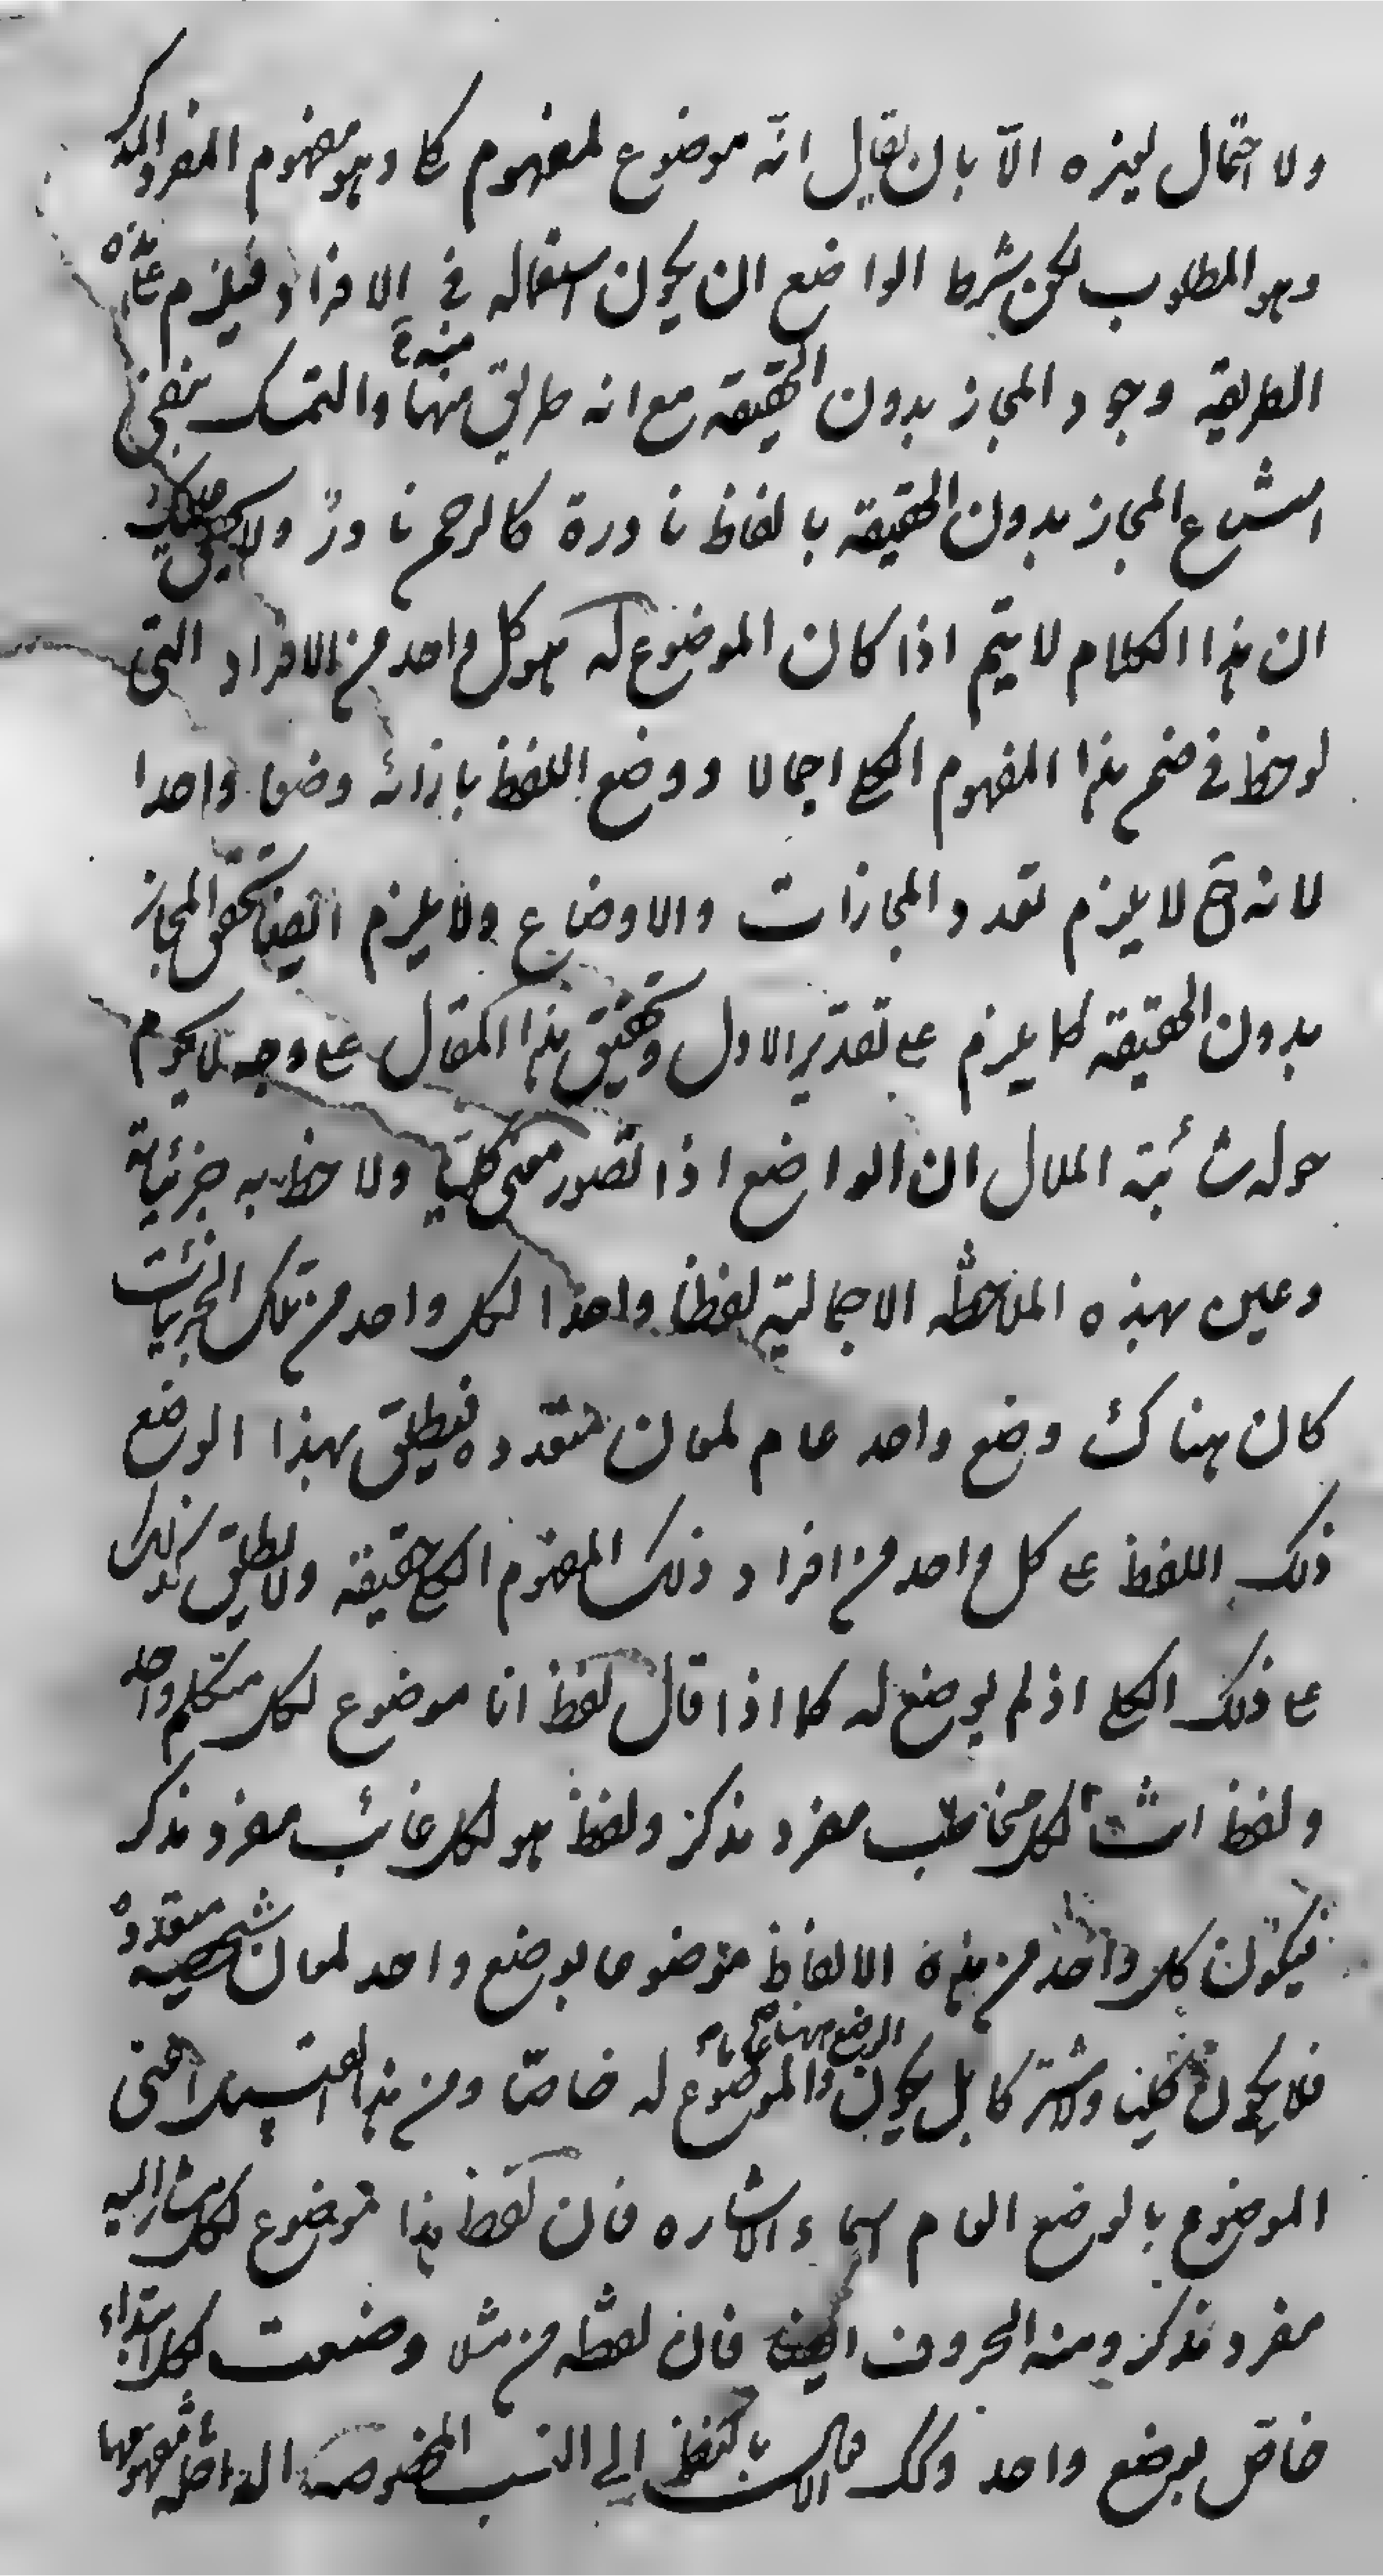 ولا احتمال لغيره الا بان يقال انه موضوع لمفهوم كلي وهو مفهوم المفرد المذكر
وهو المطلوب لكن شرط الواضع ان يكون استعماله في الافراد فيلزم على هذه
الطريقة وجود المجاز بدون الحقيقة مع انه طريق منهما والتمسك بنفي
امتناع المجاز بدون الحقيقة بالفاظ نادرة كالرحمن نادرٌ ولا يخفى عليك
ان هذا الكلام لا يتم اذا كان الموضوع له هو كل واحد من الافراد التي
لوحظ في ضمن هذا المفهوم الكلي اجمالا ووضع اللفظ بازائه وضعا واحدا
لانه ح لا يلزم تعدد المجازات والاوضاع ولا يلزم ايضا تحقق المجاز
بدون الحقيقة كما يلزم على تقدير الاول وتحقيق هذا المقال على وجه لا يحوم
حوله شائبة الملال ان الواضع اذا تصور معنى كليا ولاحظ به جزئياته
وعين بهذه الملاحظة الاجمالية لفظا واحدا لكل واحد من تلك الجزئيات
كان هناك وضع واحد عام لمعان متعددة فيطلق بهذا الوضع
ذلك اللفظ على كل واحد من افراد ذلك المفهوم الكلي حقيقة ولا يطلق كذلك
على ذلك الكلي اذ لم يوضع له كما اذا قال لفظ انا موضوع لكل متكلم واحد
ولفظ انت لكل مخاطب مفرد مذكر ولفظ هو لكل غائب مفرد مذكر
فيكون كل واحد من هذه الالفاظ موضوعا بوضع واحد لمعان شخصية متعددة
فلا يكون كليا ولا مشتركا بل يكون الوضع هنا عاما والموضوع له خاصا ومن هذا القبيل اعني
الموضوع بالوضع العام اسماء الاشاره فان لفظ هذا موضوع لكل مشار اليه
مفرد مذكر ومنه الحروف ايضا فان لفظة من مثلا وضعت لكل ابتداء
خاص بوضع واحد وكك الافعال بالنظر الى النسب المخصوصة الداخلة مفهومها